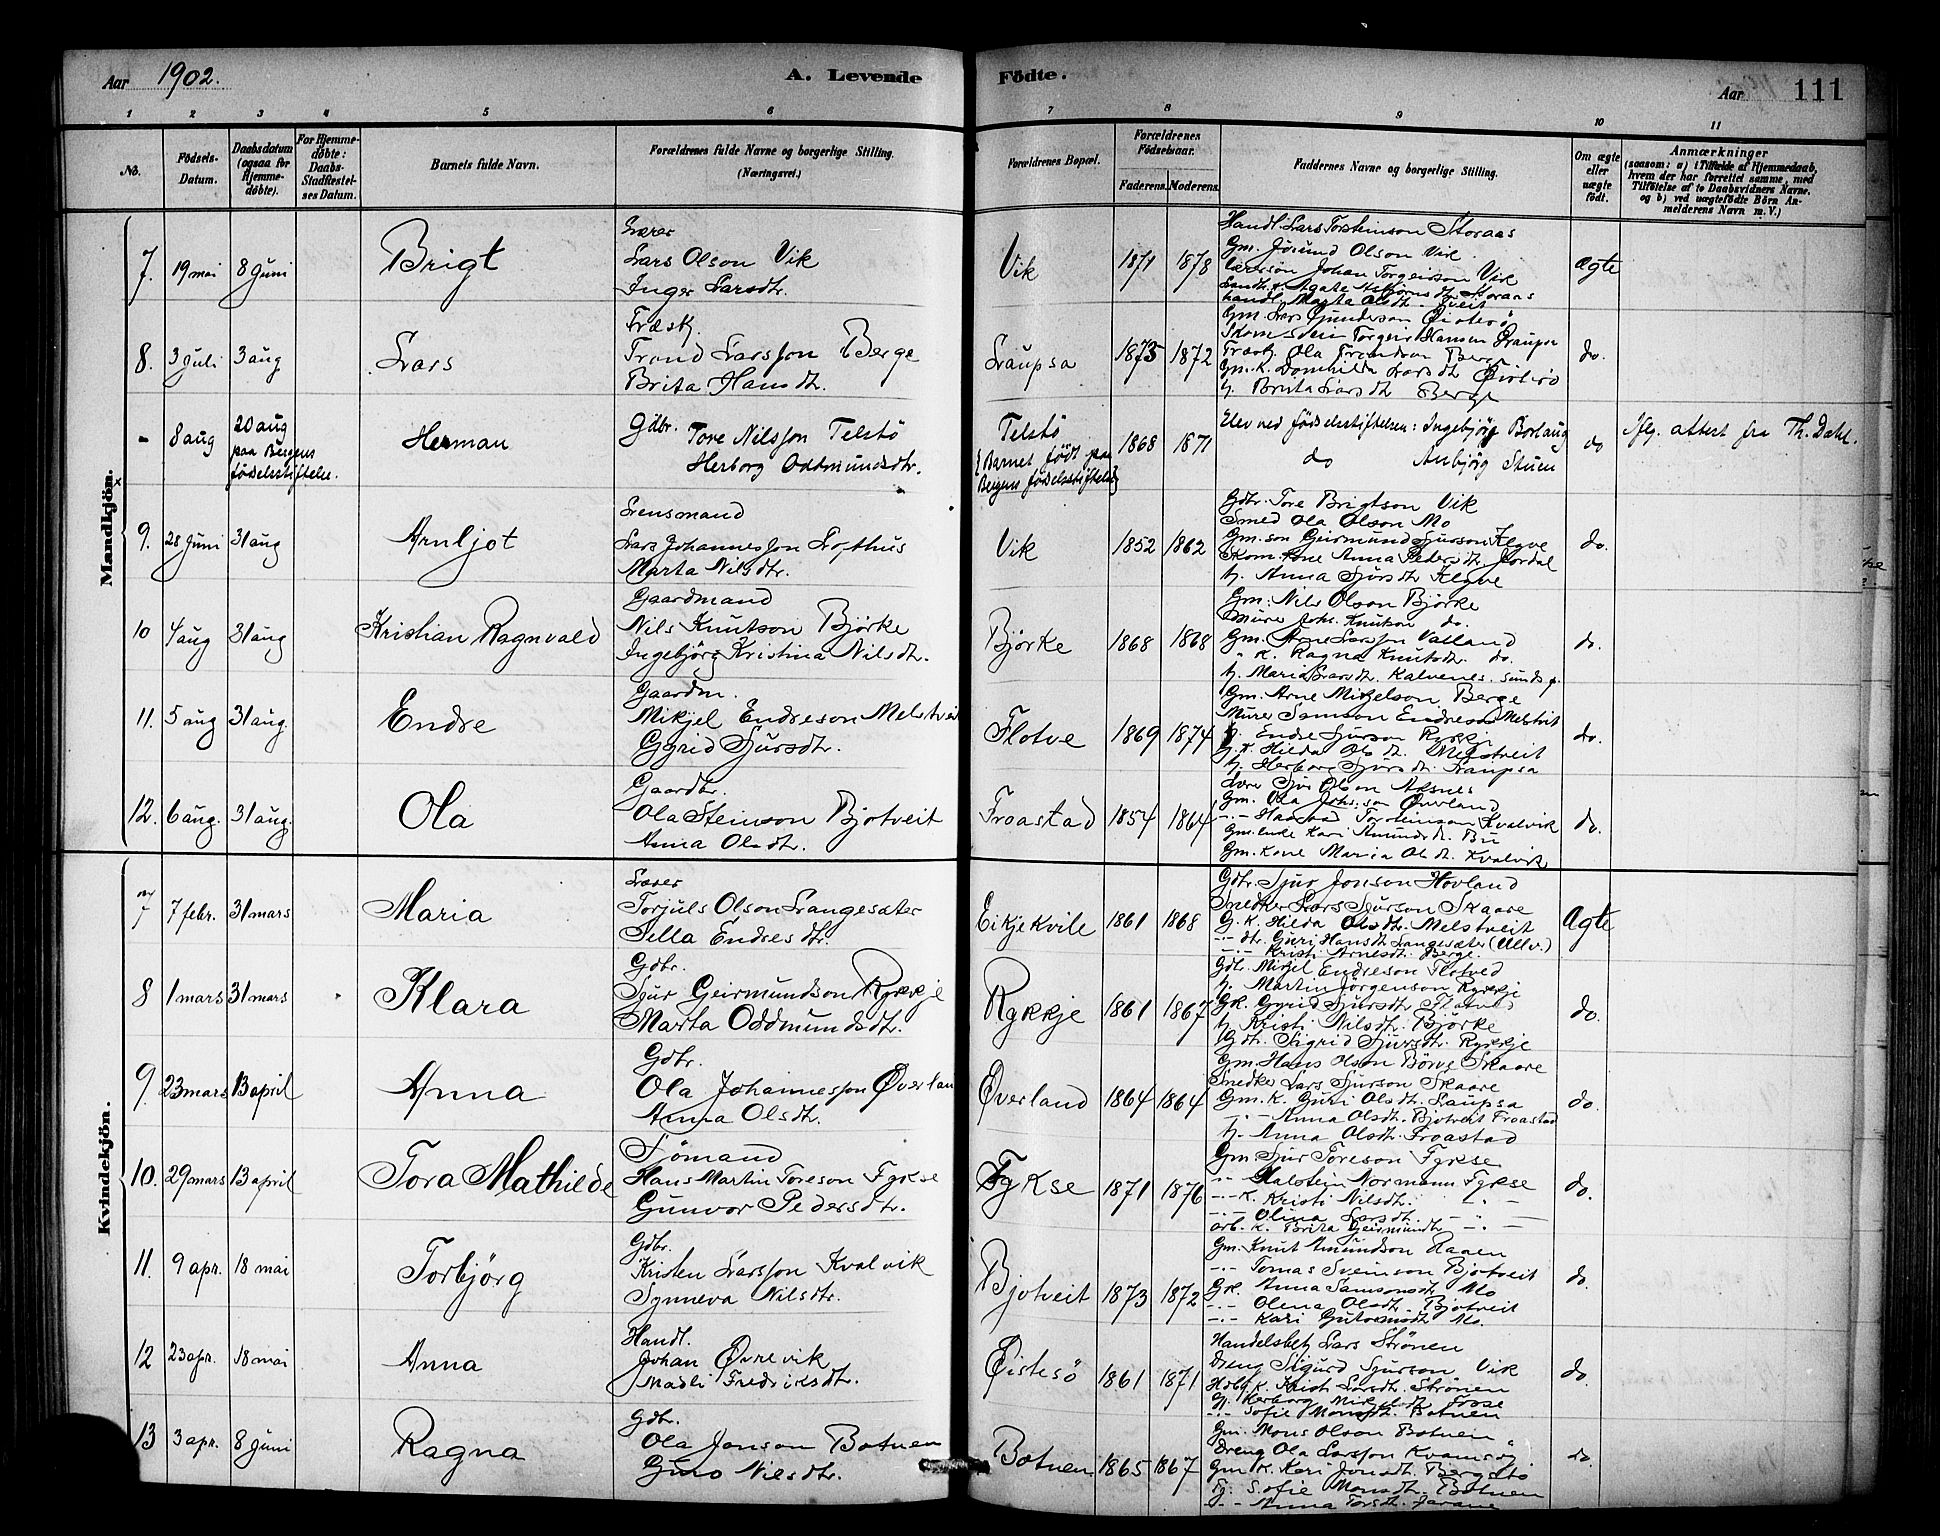 Aar 1902.
A. Levende
Födte.
Aar
111
1 2 3 4 5 6 7 8 9 10 11
No.
Födsels-Datum.
Daabsdatum (ogsaa for Hjemme-døbte).
For Hjemme-døbte: Daabs-Stadfæstel-ses Datum.
Barnets fulde Navn.
Forældrenes fulde Navne og borgerlige Stilling.
(Næringsvei.)
Forældrenes Bopæl.
Forældrenes Födselsaar.
Faderens. Moderens.
Faddernes Navne og borgerlige Stilling.
Om ægte eller uægte født.
Anmærkninger
(saasom: a) i Tilfælde af Hjemmedaab,
hvem der har forrettet samme, med
Tilföielse af to Daabsvidners Navne,
og b) ved uægtefödte Börn An-
melderens Navn m. V.)
Mandkjön.
7. 19 mai 8 Juni Brigt
Lærer
Lars Olson Vik
Inger Larsdtr.
Vik 1871 1878
Handl. Lars Torsteinson Storaas
Gm. Jörund Olson Vik.
Lærersön Johan Torgeirson Vik
Agate Asbjörnsdtr. Storaas
Handl. Marta Olsdtr. Tveit
ægte
8. 3 Juli 3 aug Lars
Træsk.
Trond Larsson Berge
Brita Hansdtr.
Laupsa 1873 1872
Gm. Lars Gunderson Öistesö
Torgeir Hansen Laupsa
Træsk. Ola Trondson Berge
Gm. K. Domhilda Larsdtr Öistesö
tj. Brita Larsdtr Berge
do.
- 8 aug 20 aug paa Bergens födselsstiftelse. Herman
Gdbr. Tore Nilsson Telstö
Herborg Oddmundsdtr.
Telstö
(Barnet födt paa
Bergens födselsstiftelse)
1868 1871
Elev ved födselsstiftelsen: Ingebjörg Borlaug
do Anbjörg Stuen
do
Iflg. attest fra Th. Dahl.
9. 28 Juni 31 aug Arnljot
Lensmand
Lars Johannesson Lofthus
Marta Nilsdtr.
Vik 1852 1862
Gdbr. Tore Brigtson Vik
Smed Ola Olson Mo
Gm. son Geirmund Sjurson Klyve
Skom. Kone Anna Pedersdtr. Jordal
tj. Anna Sjursdtr Klyve
do.
10 4 aug 31 aug Kristian Ragnvald
Gaardmand
Nils Knutson Björke
Ingebjörg Kristina Nilsdtr.
Björke 1868 1868
Gm. Nils Olson Björke
Murer Joh. Knutson do.
Gm. Arne Larsson Valland
" K. Ragna Knutsdtr. do.
tj. Maria Larsdtr. Kalvenes.
do.
11. 5 aug 31 aug. Endre
Gaardm.
Mikjel Endreson Melstveit
Gyrid Sjursdtr.
Flotve 1869 1874
Gm. Arne Mikjelson Berge
Murer Samson Endreson Melstveit
tj. Endre Sjurson Rykkje
G. K. Hilda Olsdtr. Melstveit
tj. Herborg Sjursdtr. Laupsa
do.
12. 6 aug. 31 aug. Ola
Gaardbr.
Ola Steinson Bjotveit
Anna Olsdtr.
Froastad 1854 1864
Lærer Sjur Olson Aksnes
Gm. Ola Johs.son Överland
-"- Haavard Torsteinson Kvalvik
Gm. enke Kari Amundsd. Bu
Gm. Kone Maria Olsdtr. Kvalvik
do.
Kvindekjön.
7 7 febr. 31 mars Maria
Lærer
Torjuls Olson Langesæter
Sella Endresdtr.
Eikjekvile 1861 1868
Gdbr. Sjur Jonson Hovland
Snedker Lars Sjurson Skaare
G. K. Hilda Olsdtr. Melstveit
-"- dtr. Guri Hansdtr Langesæter (Ullv.)
-"- Kristi Arnesdtr. Berge.
Ægte
8 1 mars 31 mars Klara
Gdbr.
Sjur Geirmundson Rykkje
Marta Oddmundsdtr.
Rykkje 1861 1867
Gdb. Mikjel Endreson Flotved
tj. Martin Jörgenson Rykkje
Gk. Gyrid Sjursdtr Flotved
tj. Kristi Nilsdtr. Björke
Gdtr. Sigrid Sjursdtr. Rykkje
do.
9. 23 mars 13 april Anna
Gdbr.
Ola Johannesson Överland
Anna Olsdtr.
Överland 1864 1864
Gm. Hans Olson Börve Skaare
Snedker Lars Sjurson Skaare
Gm. K. Guri Olsdtr. Laupsa
-"- Anna Olsdtr. Bjotveit Froastad
tj. Anna Olsdtr. Froastad
do.
10. 29 mars 13 april Tora Mathilde
Sömand
Hans Martin Toreson Fykse
Gunvor Pedersdtr.
Fykse 1871 1876
Gm Sjur Toreson Fykse
-"- Halstein Normann Fykse
-"- K. Kristi Nilsdtr. -"-
-"- Olina Larsdtr -"-
arb. K. Brita Geirmundtr -"-
do.
11. 9 apr. 18 mai Torbjörg
Gdbr.
Kristen Larsson Kvalvik
Synneva Nilsdtr.
Bjotveit 1873 1872
Gm. Knut Amundson Raaen
-"- Tomas Sveinson Bjotveit
Gk. Anna Samsonsdtr Mo
-"- Olena Olsdtr. Bjotveit
-"- Kari Guttormsdtr Mo.
do.
12 23 apr. 18 mai Anna
Handl.
Johan Övrevik
Madli Fredriksdtr.
Öistesö 1861 1871
Handelsbetj Lars Strönen
Dreng Sigurd Sjurson Vik
Hdbg. K. Kristi Larsdtr. Strönen
G. Herborg Mikjelsdtr Frose
-"- Sofie Monsdtr. Botnen
do
13 3 apr. 8 Juni Ragna
Gdbr.
Ola Jonson Botnen
Guro Nilsdtr.
Botnen 1865 1867
Gm. Mons Olson Botnen
Dreng Ola Larsson Kvamsöy
Gm K. Kari Jonsdtr. Bergstö
Tj. Sofie Monsdtr. Botnen
-"- Anna Torsdtr.
do.